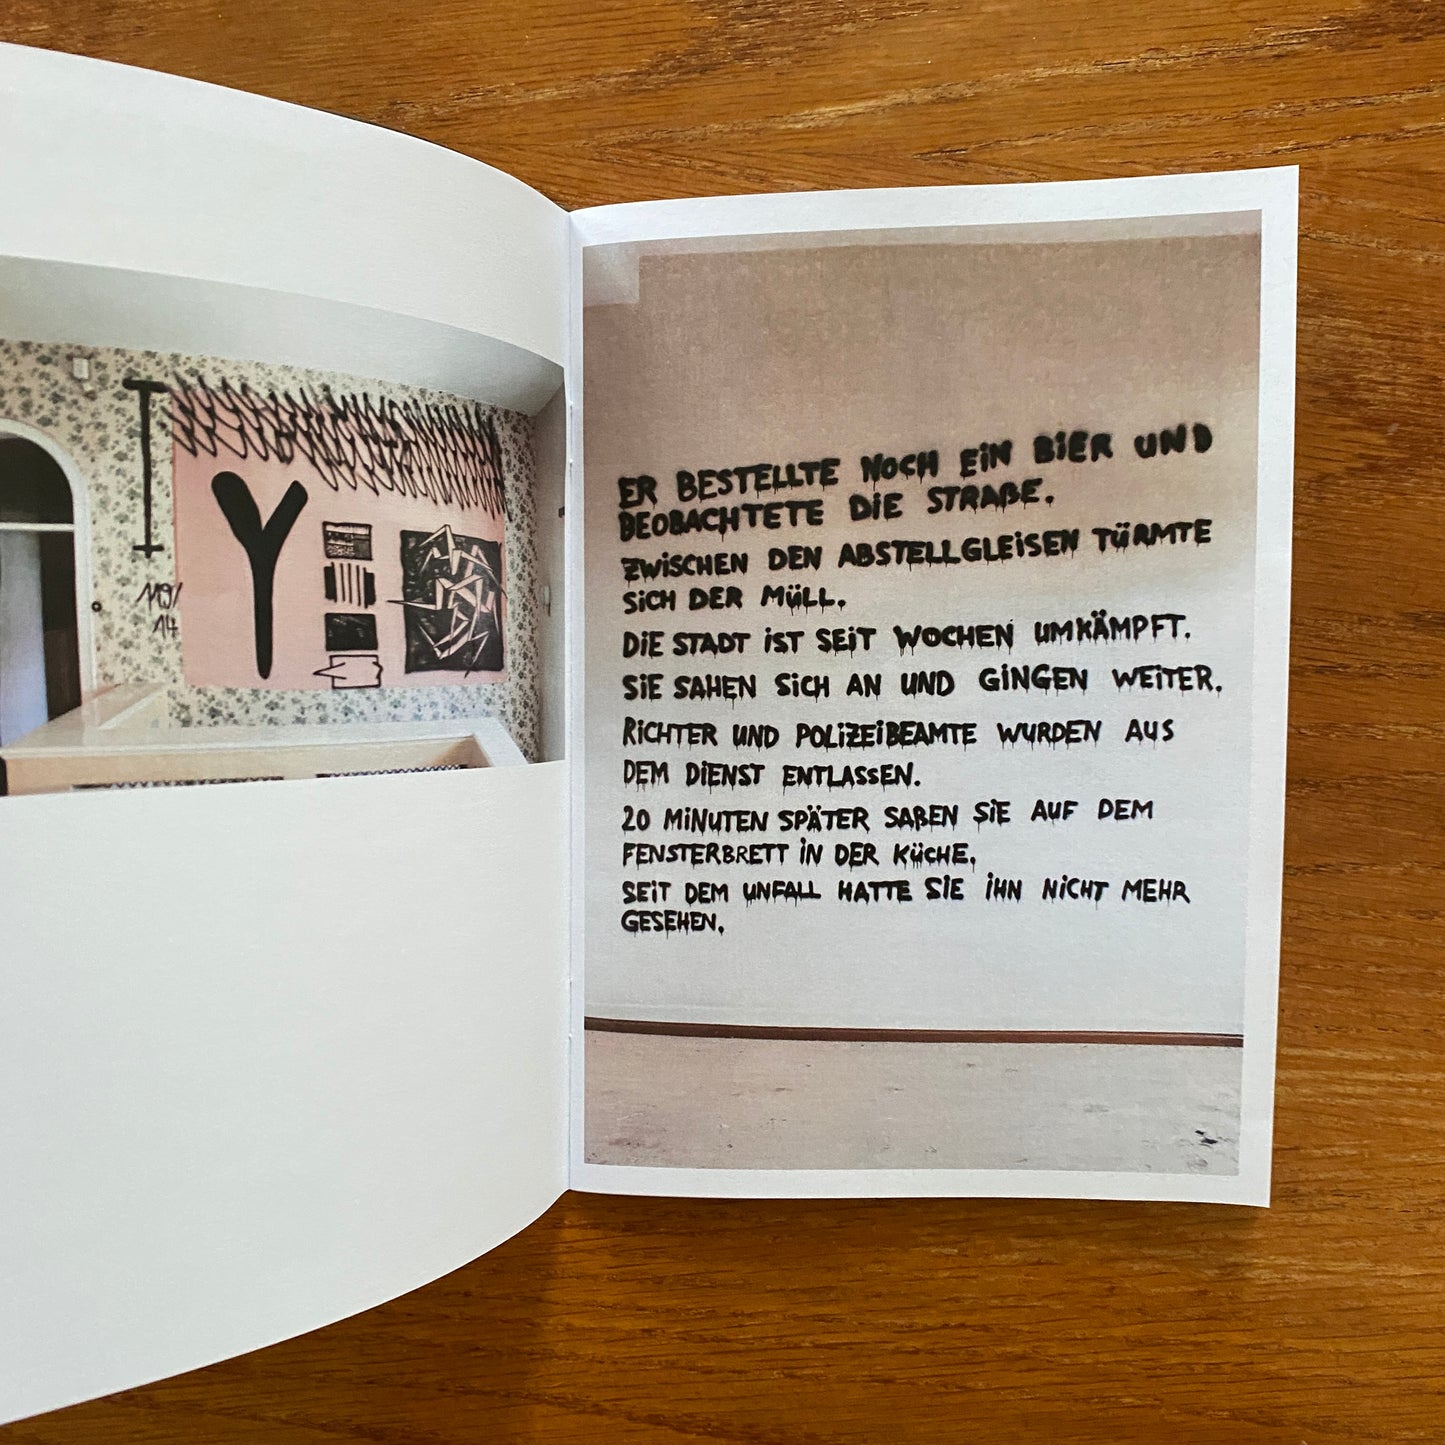 I
Y
MO/
14
ER BESTELLTE NOCH EIN BIER UND
BEOBACHTETE DIE STRAßE.
ZWISCHEN DEN ABSTELLGLEISEN TÜRMTE
SICH DER MÜLL.
DIE STADT IST SEIT WOCHEN UMKÄMPFT.
SIE SAHEN SICH AN UND GINGEN WEITER.
RICHTER UND POLIZEIBEAMTE WURDEN AUS
DEM DIENST ENTLASSEN.
20 MINUTEN SPÄTER SAßEN SIE AUF DEM
FENSTERBRETT IN DER KÜCHE.
SEIT DEM UNFALL HATTE SIE IHN NICHT MEHR
GESEHEN.